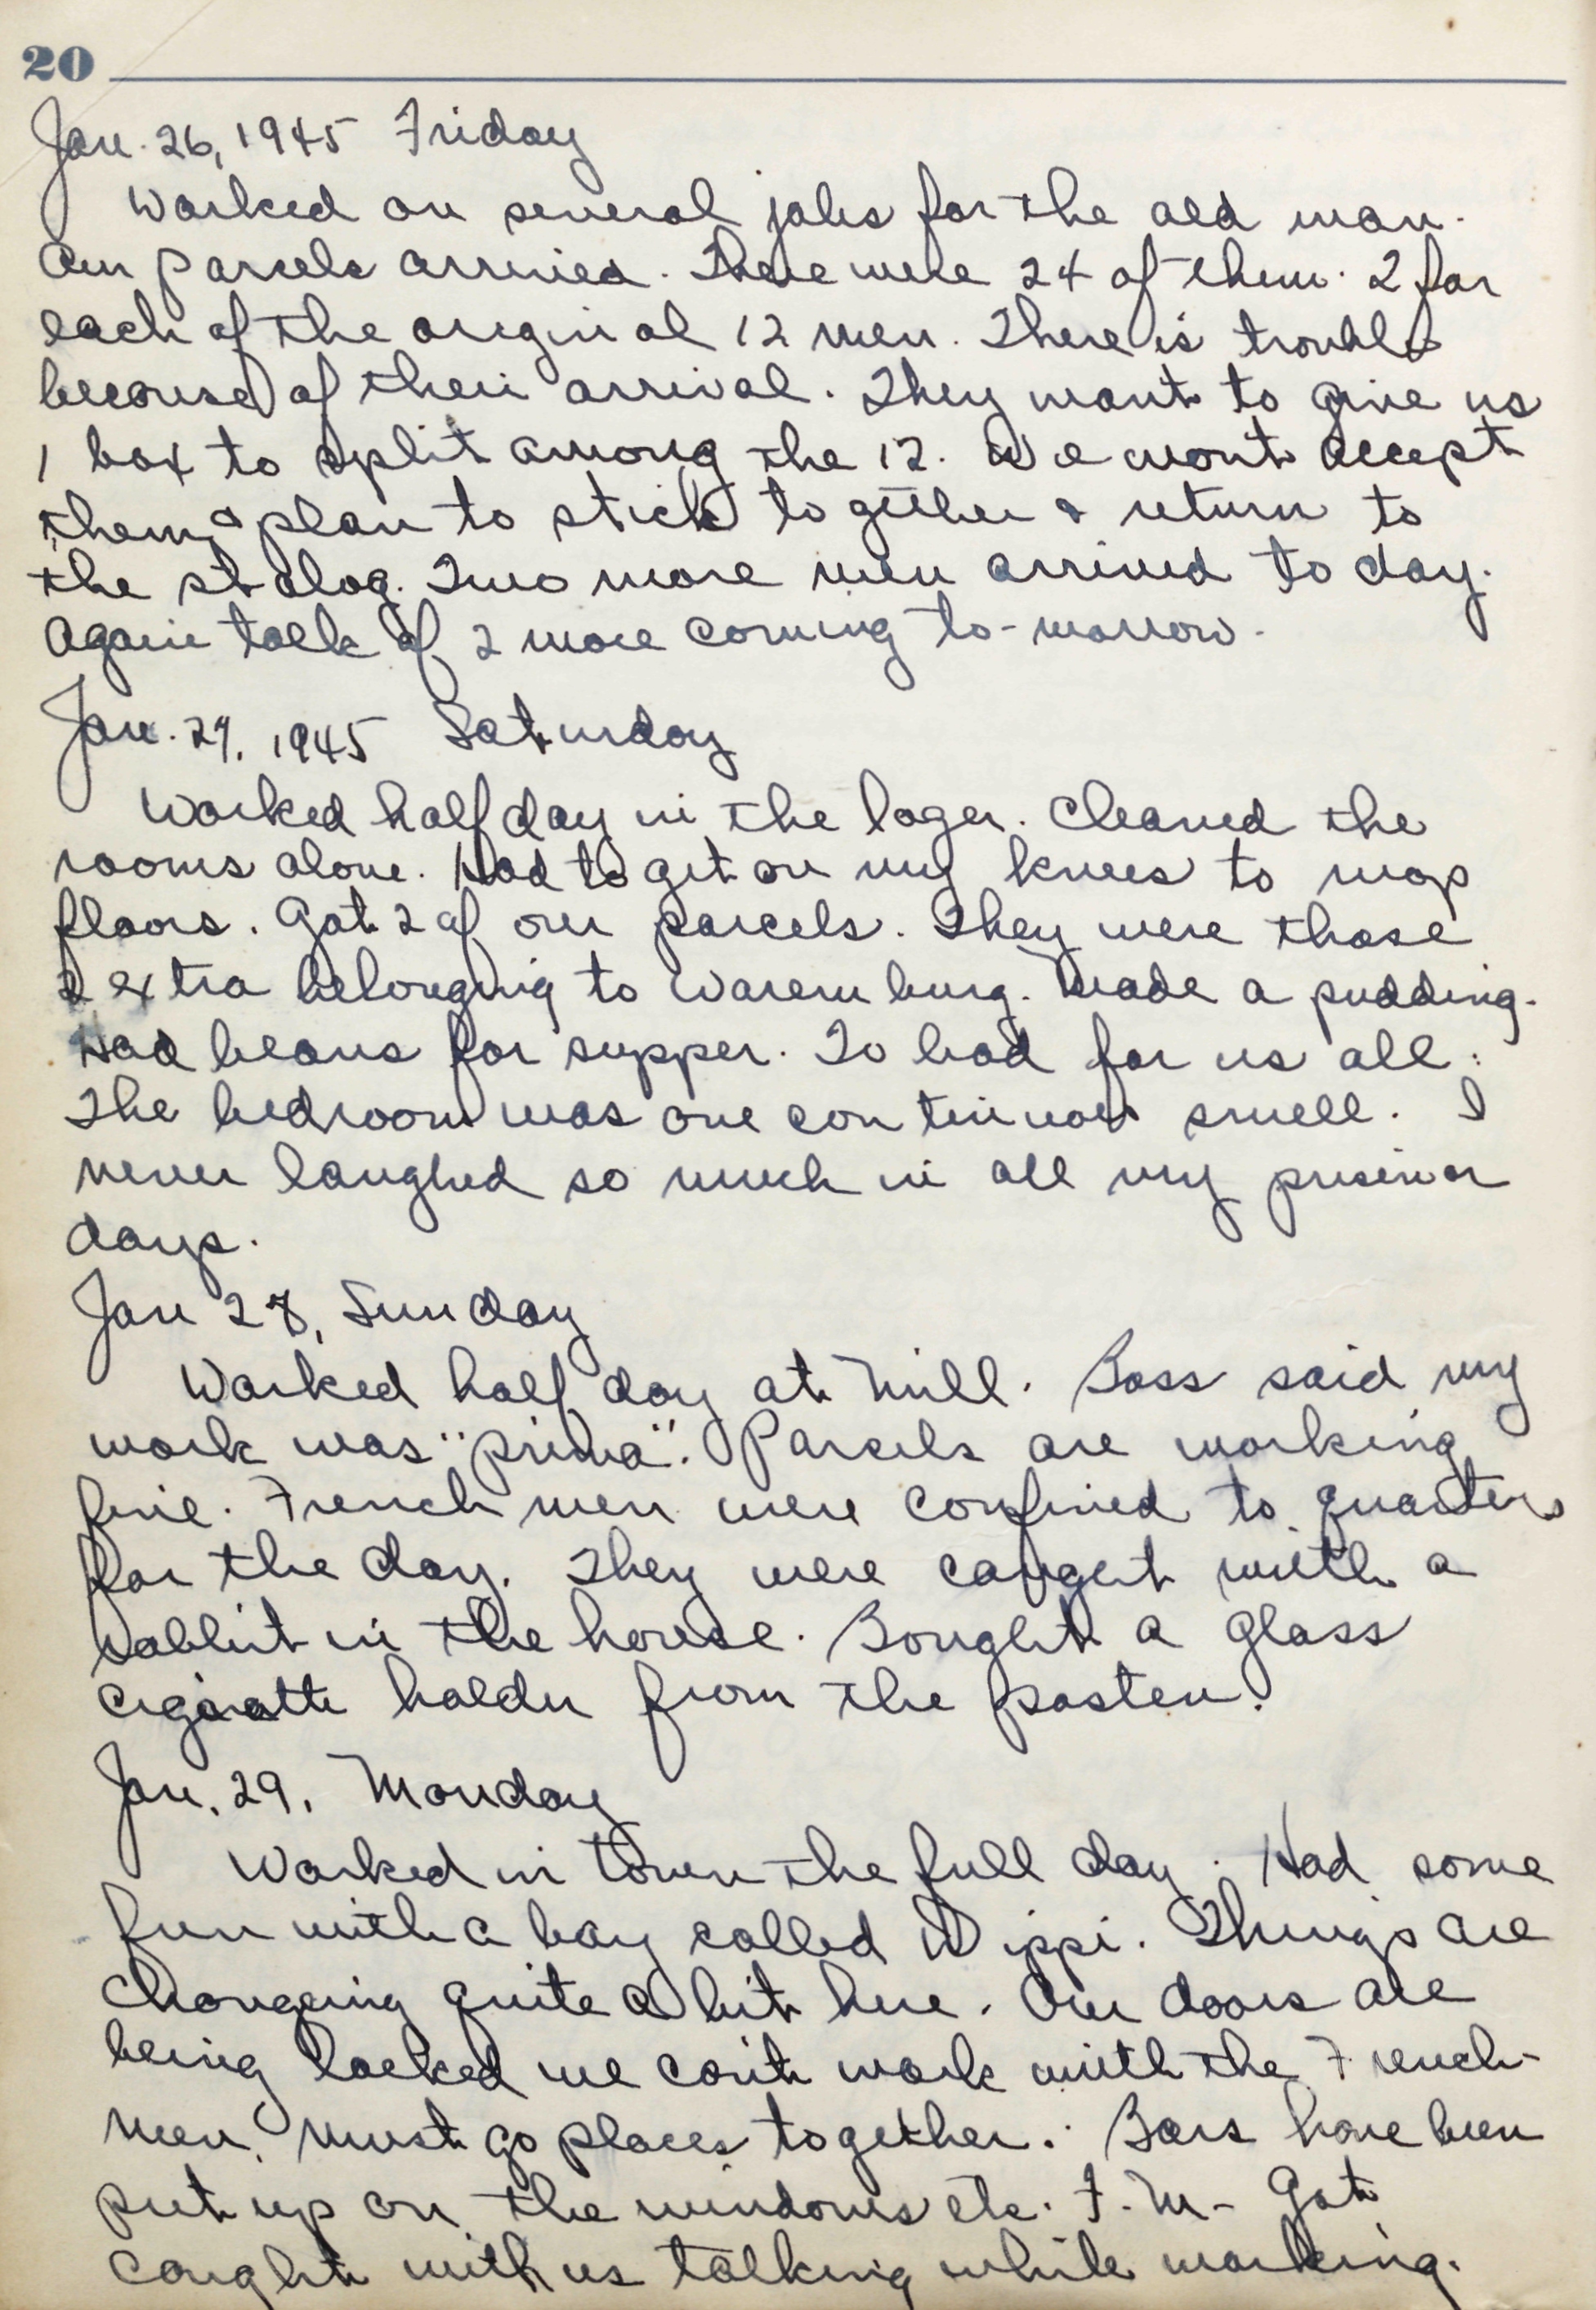 20
Jan. 26, 1945 Friday
Worked on several jobs for the old man.
Our parcels arrived. There were 24 of them. 2 for
each of the original 12 men. There is trouble
because of their arrival. They want to give us
1 box to split among the 12. We wont accept
them & plan to stick together & return to
the stalag. Two more men arrived to day.
Again talk of 2 more coming to-morrow.
Jan. 27, 1945 Saturday
Worked half day in the lager. Cleaned the
rooms alone. Had to get on my knees to mop
floors. Got 2 of our parcels. They were those
2 extra belonging to Waremburg. Made a pudding.
Had beans for supper. To bad for us all.
The bedroom was one continuous smell. I
never laughed so much in all my prisinor
days.
Jan 28, Sunday
Worked half day at Mill. Boss said my
work was "prima". Parcels are working
fine. French men were confined to quarters
for the day. They were caught with a
rabbit in the house. Bought a glass
cigaratte holder from the posten.
Jan. 29, Monday
Worked in town the full day. Had some
fun with a boy called Wippi. Things are
changeing quite a bit here. Our doors are
being locked we can't work with the French-
men. Must go places together. Bars have been
put up on the windows etc. F.M- Got
caught with us talking while working.